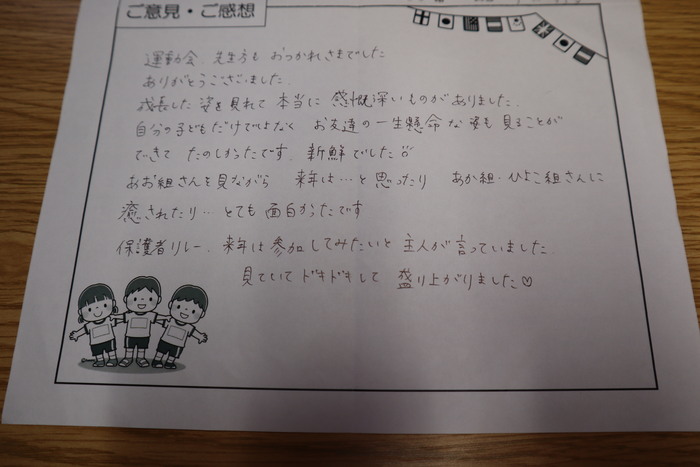 ご意見・ご感想
運動会、先生方も おつかれさまでした
ありがとうございました。
成長した姿を見れて 本当に 感慨深いものがありました。
自分の子どもだけでなく お友達の一生懸命な姿も見ることが
できて たのしかったです。新鮮でした
あお組さんを見ながら 来年は…と思ったり あか組・ひよこ組さんに
癒されたり… とても 面白かったです
保護者リレー、来年は参加してみたいと 主人が言っていました。
見ていて ドキドキして 盛り上がりました♡